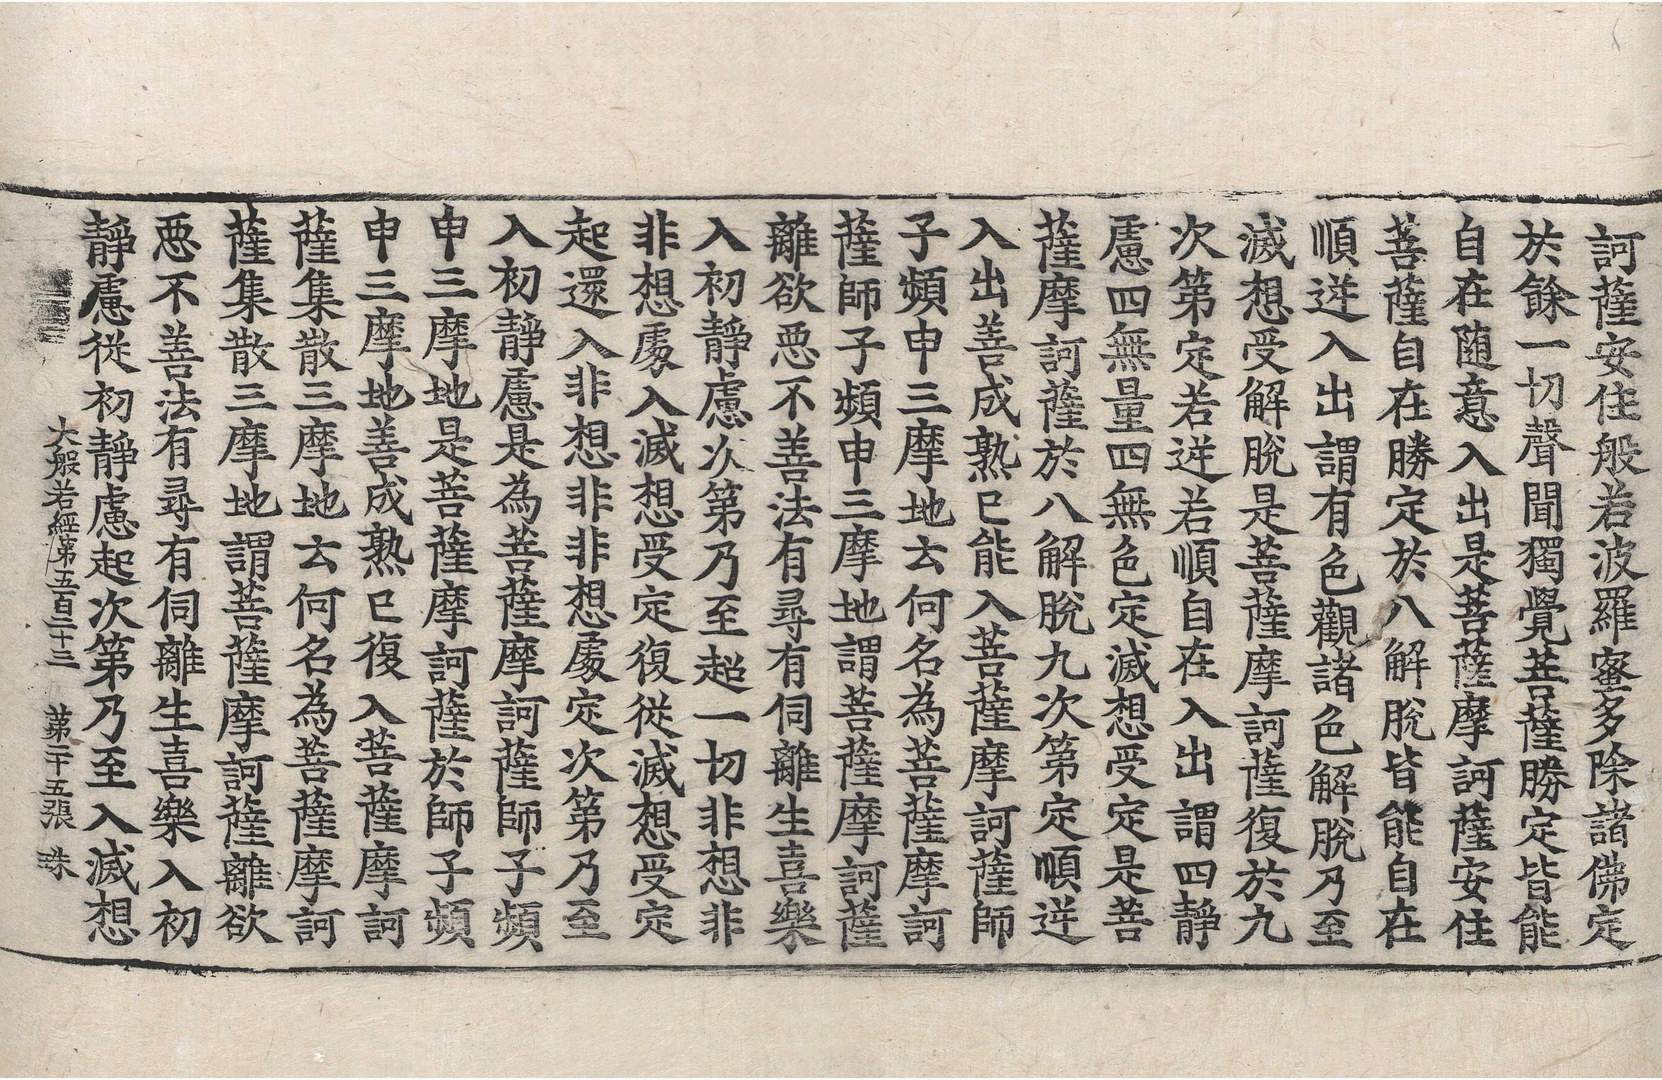 訶薩安住般若波羅蜜多除諸佛定
於餘一切聲聞獨覺菩薩勝定皆能
自在随意入出是菩薩摩訶薩安住
菩薩自在勝定於八解脫皆能自在
順逆入出謂有色觀諸色解脫乃至
滅想受解脫是菩薩摩訶薩復於九
次第定若逆若順自在入出謂四靜
慮四無量四無色定滅想受定是菩
薩摩訶薩於八解脫九次第定順逆
入出善成熟已能入菩薩摩訶薩師
子頻申三摩地云何名為菩薩摩訶
薩師子頻申三摩地謂菩薩摩訶薩
離欲惡不善法有尋有伺離生喜樂
入初靜慮次第乃至超一切非想非
非想處入滅想受定復從滅想受定
起還入非想非非想處定次第乃至
入初靜慮是為菩薩摩訶薩師子頻
申三摩地是菩薩摩訶薩於師子頻
申三摩地善成熟已復入菩薩摩訶
薩集散三摩地云何名為菩薩摩訶
薩集散三摩地謂菩薩摩訶薩離欲
惡不善法有尋有伺離生喜樂入初
靜慮從初靜慮起次第乃至入滅想
大般若經第五百二十三 第二十五張 珠